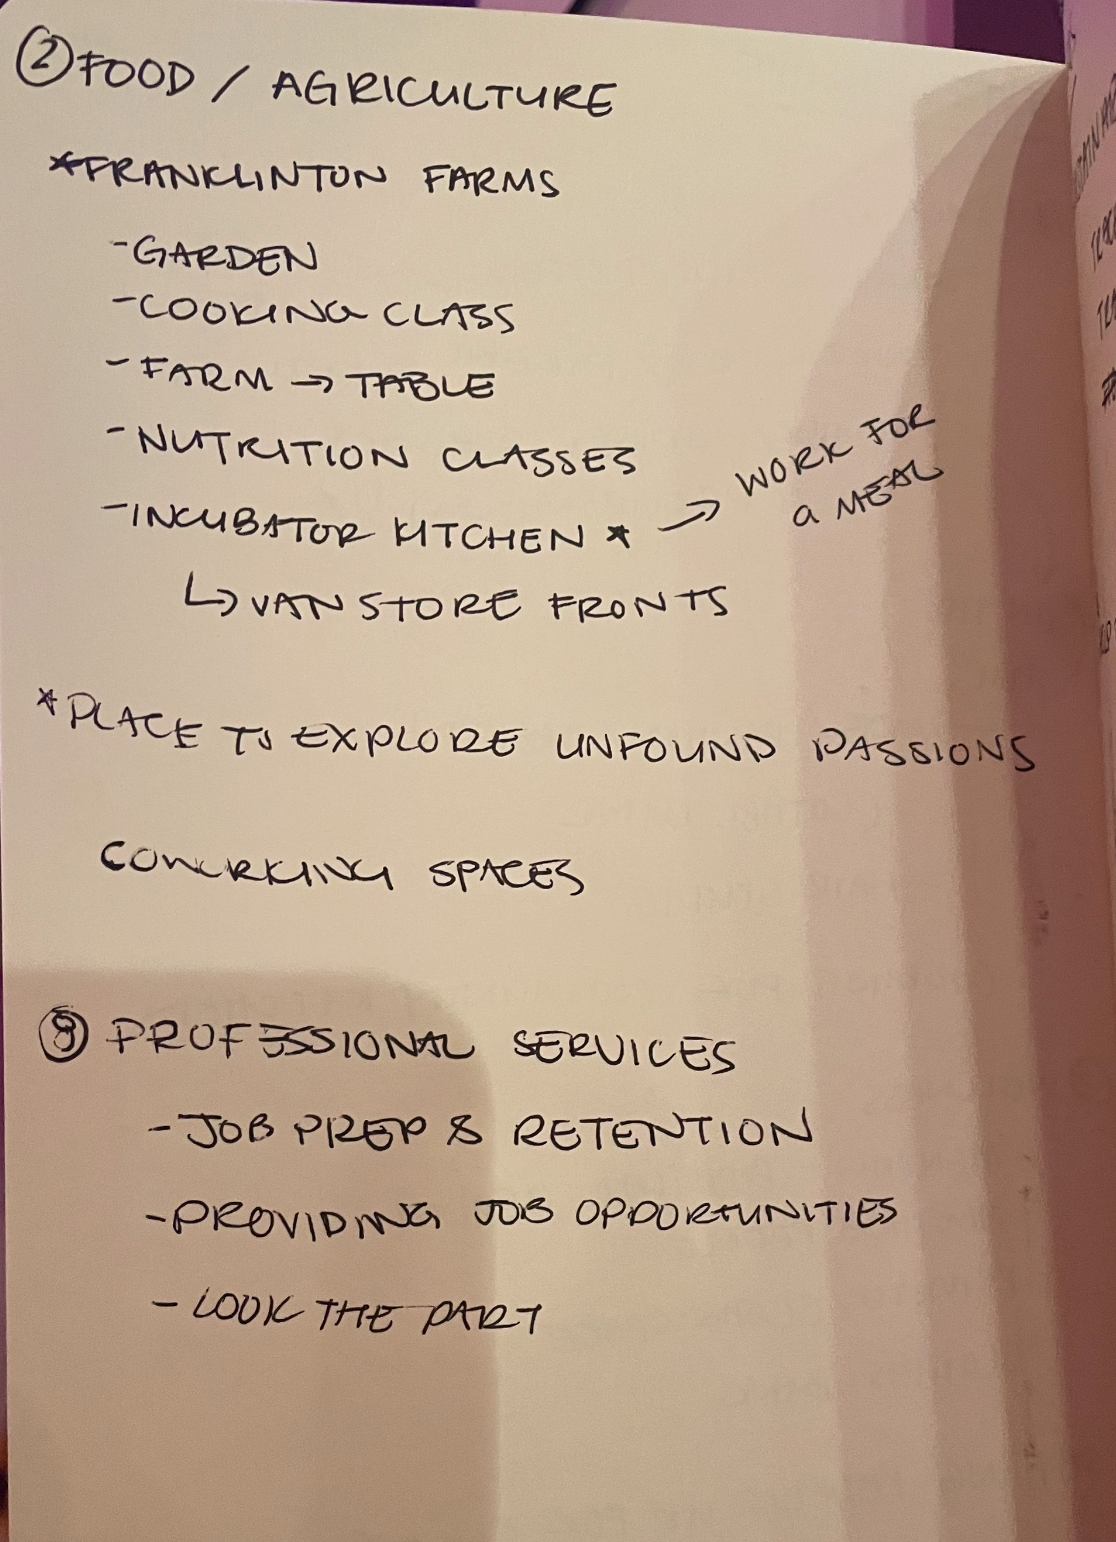 ② FOOD / AGRICULTURE
*FRANKLINTON FARMS
- GARDEN
- COOKING CLASS
- FARM → TABLE
- NUTRITION CLASSES
- INCUBATOR KITCHEN * → WORK FOR
a MEAL
↳ VAN STORE FRONTS
* PLACE TO EXPLORE UNFOUND PASSIONS
COWORKING SPACES
PROFESSIONAL SERVICES
- JOB PREP & RETENTION
- PROVIDING JOB OPPORTUNITIES
- LOOK THE PART